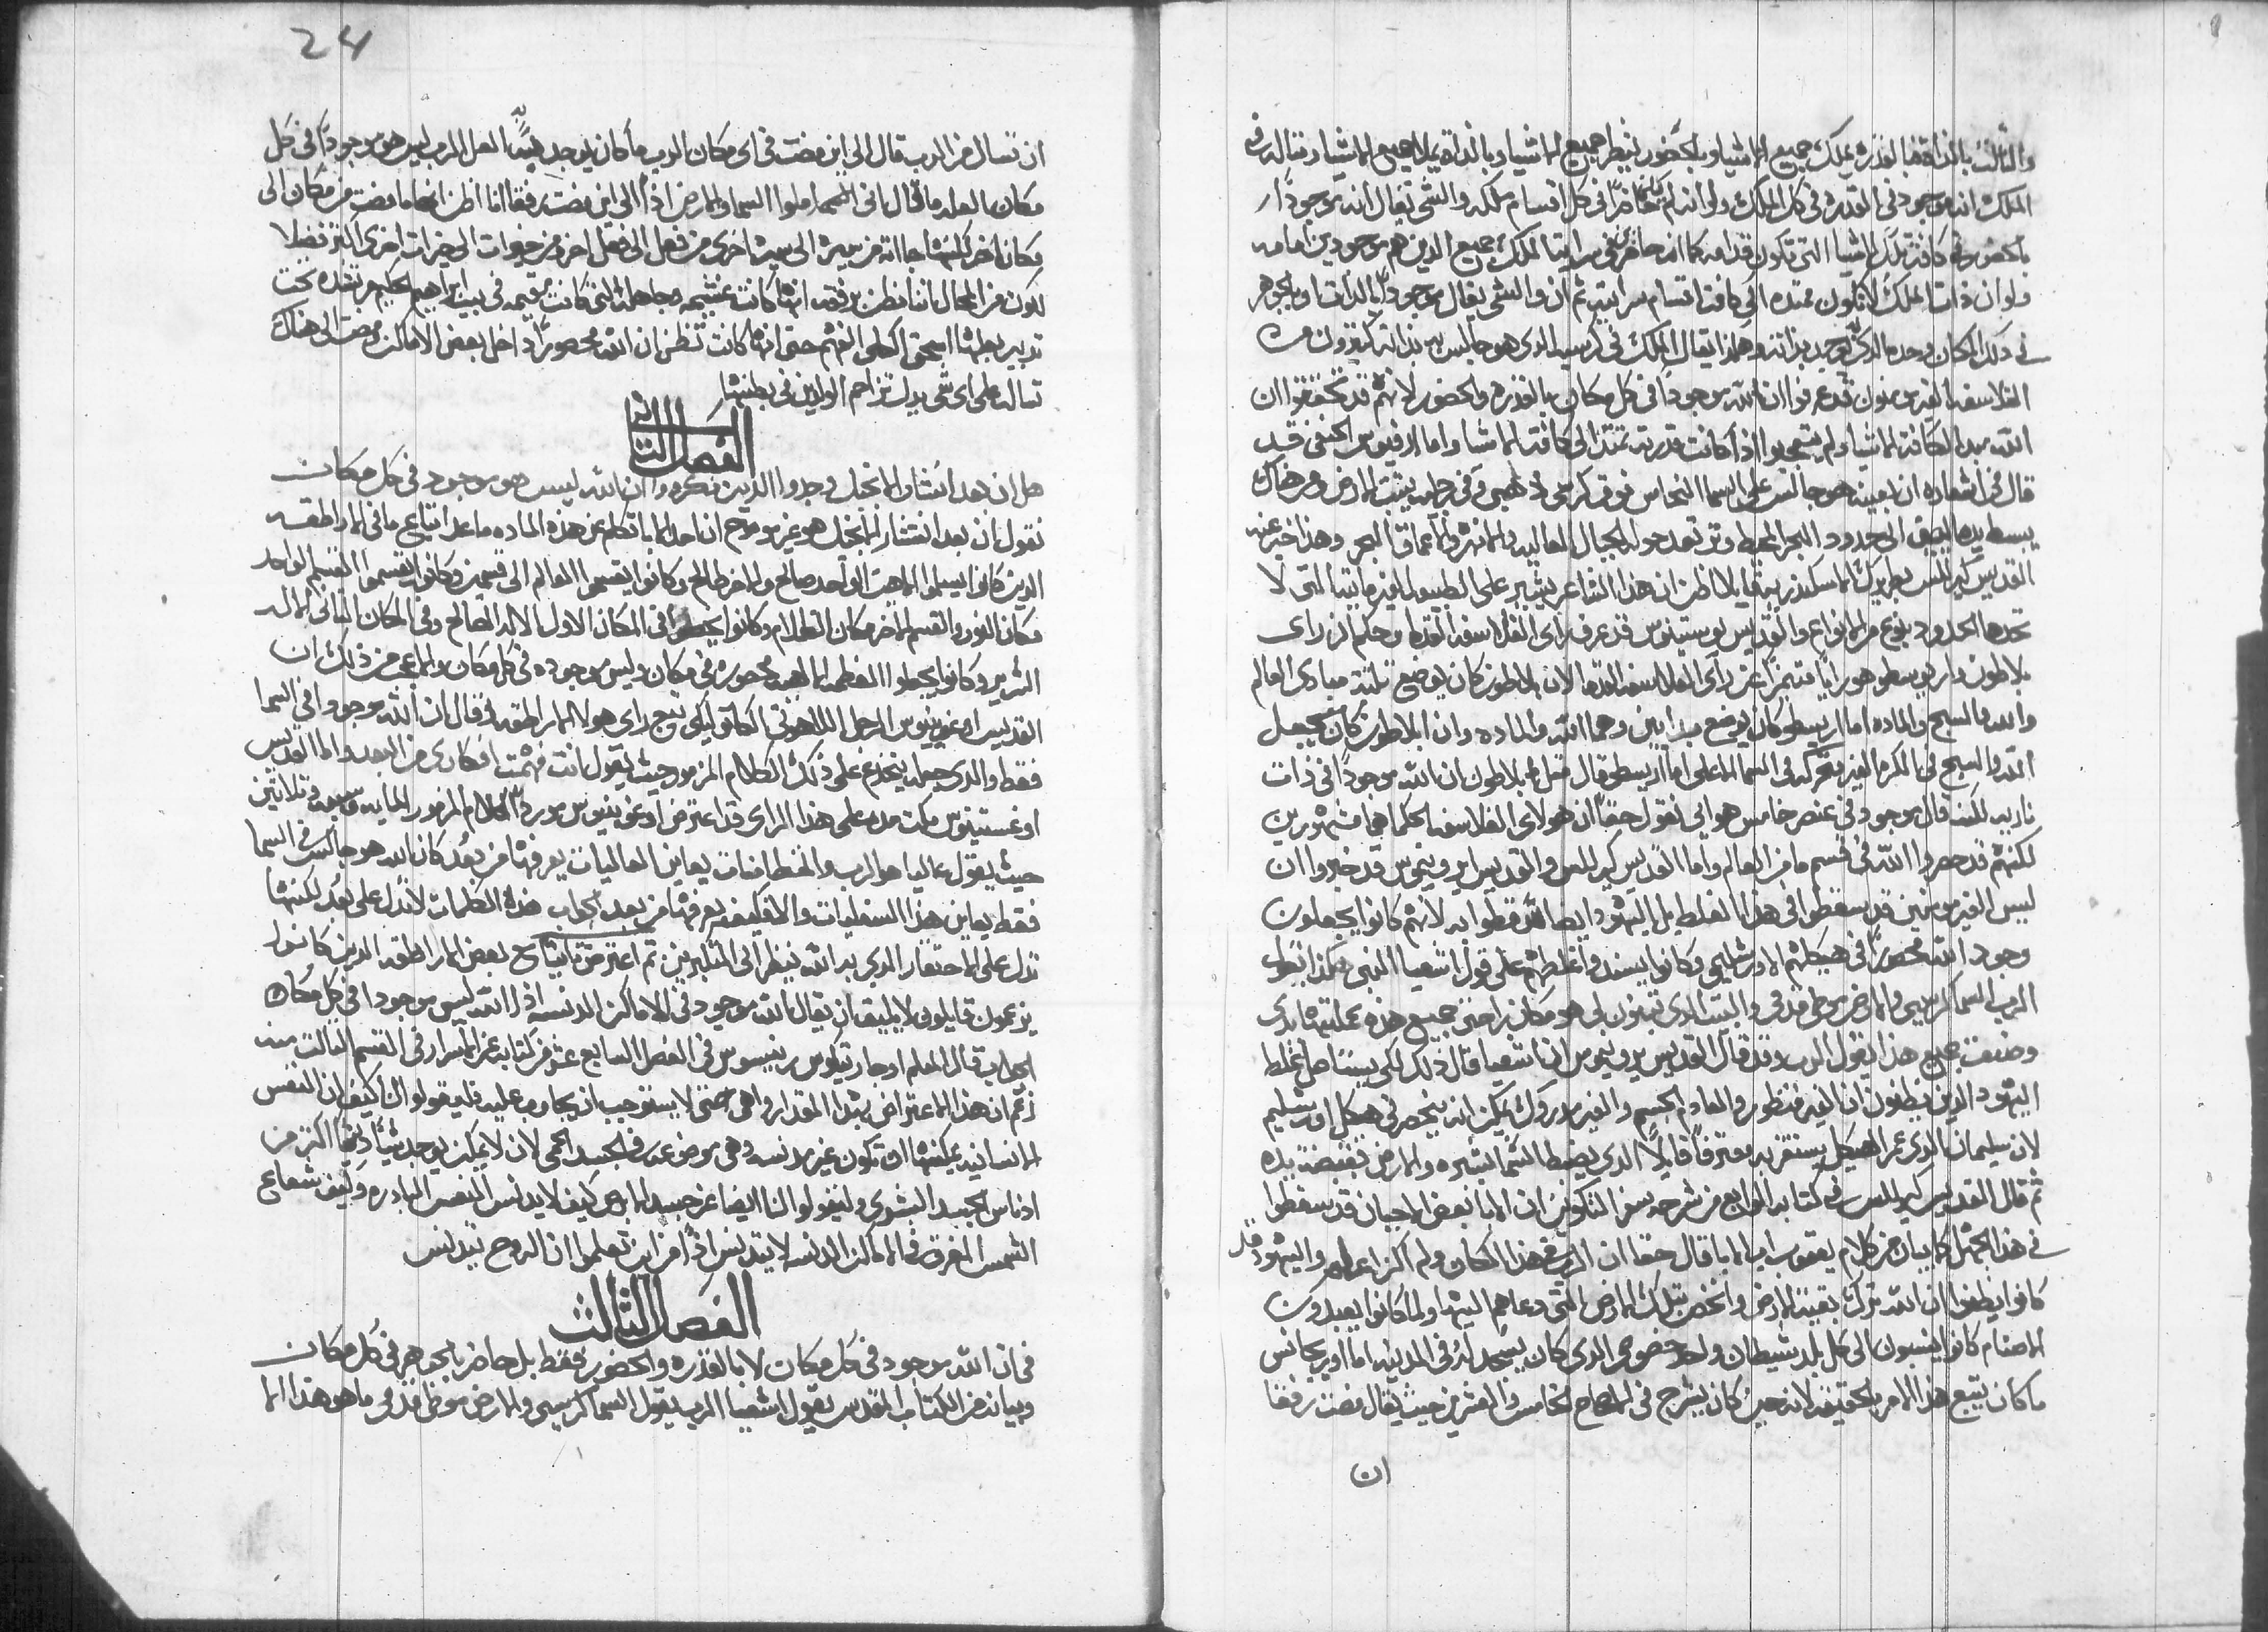 والثالث بالذات فبالقدره يملك جميع الاشيا وبالحضور ينظر جميع الاشيا وبالذات يملا جميع الاشيا ومثاله في
الملك انه موجود في القدره في كل الملك ولو انه لم يكن حاضرا في كل اقسام ملكه والشي يقال انه موجودا
بالحضور في كافة تلك الاشيا التي تكون قدامه كما انه حاضر في سرايت الملك جميع الذين هم موجودين امامه
ولو ان ذات الملك لا تكون ممتده الي كافت اقسام سرايته ثم ان والشي يقال موجودا بالذات او بالجوهر
في ذلك المكان وحده الذي يوجد بذاته وهكذا يقال الملك في كرسيه الذي هو جالس به بذاته كثيرون من
الفلاسفه الغير مومنون قد عرفوا ان الله موجودا في كل مكان بالقدره والحضور لانهم قد تحققوا ان
الله مبدا لكافة الاشيا ولم يتعجبوا اذا كانت قدرته تمتد الي كافت الاشيا واما ارفيوس الحنفي قد
قال في اشعاره ان بعينه هو جالس علي السما النحاس فوق كرسي ذهبي وفي رجليه يثبت الارض ومن هناك
يبسط يده اليمني الي حدود البحر المحيط وترتعد حوله الجبال العاليه والانهر واعماق البحر وهذا خبر عنه
القديس كيرللس بطريرك الاسكندريه قايلا اظن ان هذا الشاعر يشير علي الطبيعه الغير مايته التي لا
تحدها الحدود بنوع من الانواع والقديس يوستينوس قد عرف راي الفلاسفه القدما وحكم ان راي
بلاطون واريسطو هو رايا متميزا عن راي الفلاسفه القدما لان بلاطون كان يوضع ثلثة مبادي العالم
والله والسبح والماده اما اريسطو كان يوضع مبدايين وهما الله والماده وان ابلاطون كان يجعل
الله والسبح في الكره الغير متحركه في السما الاعلي اما اريسطو قال مثل بلاطون ان الله موجودا في ذات
ناريه لكنه قال موجود في عنصر خامس هوايي نقول حقا ان هولاي الفلاسفه الحكما هم مشهورين
لكنهم قد حصروا الله في قسم ما من العالم واما القديس كيرللس والقديس ايرونيموس قد خبروا ان
ليس الغير مومنين قد سقطوا في هذا الغلط بل اليهود ايضا قد سقطوا به لانهم كانوا يجعلون
وجود الله محصورا في هيكلهم الاورشليمي وكانوا يسندوا غلطهم علي قول اشعيا النبي هكذا يقول
الرب السما كرسيي والارض موطي قدمي والبيت الذي تبنون لي هو مكان راحتي جميع هذه عملتها يدي
وصنعت جميع هذا يقول الرب وقد قال القديس يرونيموس ان اشعيا قال ذلك لكي يستاصل غلط
اليهود الذين يظنون ان الغير منظور والعادم الجسم والغير مدروك يمكن انه ينحصر في هيكل اورشليم
لان سليمان الذي عمر الهيكل يستقر به معترفا قايلا الذي يضبط السما بشبره والارض بقبضة يده
ثم قال القديس كيرللس في كتابه الرابع من شرحه سفر التكوين ان الابا بعض الاحيان قد سقطوا
في هذا الجهل كما يبان من كلام يعقوب اب الابا قال حقا ان الرب في هذا المكان ولم اكن اعلم واليهود قد
كانوا يظنوا ان الله ترك بقية الارض وانحصر بتلك الارض التي دعاهم اليها ولما كانوا يعبدون
الاصنام كانوا ينسبون الي كل بلد شيطان واحد خصوصي الذي كان يسجد له في المدينه اما اوريجانس
ما كان يتبع هذا الامر بالحقيقه لانه حين كان يشرح في الاصحاح الخامس والعشرين حيث يقال مضت رفقا
ان
24
ان تسال من الرب قال الي اين مضت في اي مكان الرب ما كان يوجد به العل الرب ليس هو موجودا في كل
مكان العله ما قال انني انا املوا السما والارض اذا الي اين مضت رفقا انا اظن انها ما مضت من مكان الي
مكان اخر لكنها جات من سيره الي سيره اخري من فعل الي فعل اخر من خيرات الي خيرات اخري اكثر فضلا
يكون من المحال اننا نظن برفقه انها كانت غشيمه جاهله التي كانت مقيمه في بيت ابراهيم الحكيم مرتشده تحت
تدبير بعلها اسحق الكلي الفهم حتي انها كانت تظن ان الله محصورا داخل بعض الاماكن ومضت الي هناك
تساله علي اي شي يدل تزاحم الولدين في بطنها
الفصل الثاني
هل ان بعد انتشار الانجيل وجدوا الذين فكروا ان الله ليس هو موجود في كل مكان
نقول ان بعد انتشار الانجيل هو غير موضح ان احد الابا تكلم عن هذه الماده ما عدا اتباع ماني الاراطقه
الذين كانوا يسلموا الاهين الواحد صالح والاخر طالح وكانوا يقسموا العالم الي قسمين وكانوا يقسموا القسم الواحد
مكان النور والقسم الاخر مكان الظلام وكانوا يحطوا في المكان الاول الاله الصالح وفي المكان الثاني الاله
الشرير وكانوا يجعلوا العظمه الالهيه محصوره في مكان وليس موجوده في كل مكان والاعجب من ذلك ان
القديس اوغوبينوس الرجل اللاهوتي الكاتوليكي وتبع راي هولا الاراطقه وقال ان الله موجودا في السما
فقط والذي جعله ينخدع علي ذلك الكلام المزمور حيث يقول انت فهمت افكاري من البعد واما القديس
اوغستينوس مكث مده علي هذا الراي قد اعترض اوغوبينوس مورد الكلام المزمور المايه وسبعه وثلاثين
حيث يقول عاليا هو الرب والمتطامنات يعاين العاليات يعرفها من بعد كان الله هو جالس في السما
فقط يعاين هذا السفليات والمواقف يعرفها من بعد الجواب هذه الكلمات لا تدل علي بعد لكنها
تدل علي الاحتقار الذي به الله ينظر الي المتكبرين ثم اعترض اتباع بعض الاراطقه الذين كانوا
يزعمون قايلين لا يليق ان يقال الله موجود في الاماكن الدنسه اذا الله ليس موجودا في كل مكان
الجواب قال المعلم اوجارتيكوس برينيسوس في الفصل السابع عشر من كتابه عن الاسرار في القسم الثالث منه
زعم ان هذا الاعتراض بهذا المقدار واهي حتي لا يستوجب ان يجاوب عليه فليقولوا لنا كيف ان النفس
الانسانيه يمكنها ان تكون غير مدنسه وهي موضوعه في الجسد الحي لان لا يمكن يوجد شيا دنسا اكثر من
ادناس الجسد البشري وليقولوا لنا ايضا عن جسد الابرص كيف لا يدنس النفس الباره وكيف شعاع
الشمس المغرق في الاماكن الدنسه لا يتدنس اذا من اين تعلموا ان الروح يتدنس
الفصل الثالث
في ان الله موجود في كل مكان لا بالقدره والحضور فقط بل حاضر بالجوهر في كل مكان
وبيانه من الكتاب المقدس يقول اشعيا الرب يقول السما كرسيي والارض موطي قدمي ما هو هذا الا